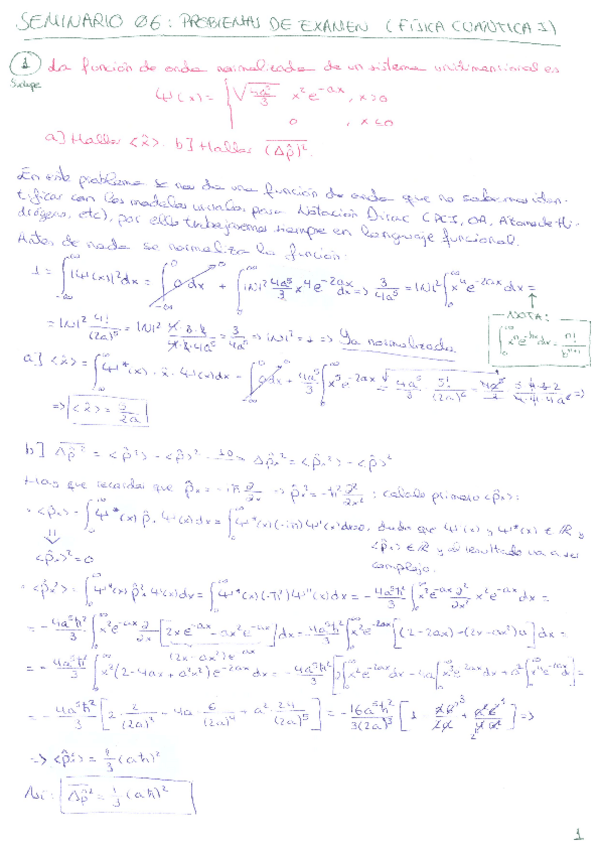 SEMINARIO 06: PROBLEMAS DE EXAMEN (FÍSICA CUÁNTICA I)
① La función de onda normalizada de un sistema unidimensional es
Ψ(x) = { √(4a⁵/3) x² e^{-ax}, x>0
0, x≤0
a] Hallar <x̂>. b] Hallar (Δp̂)².
En este problema se nos da una función de onda que no sabemos iden-
tificar con los modelos usuales, para Notación Dirac (PCI, OA, Átomo de Hi-
drógeno, etc), por ello trabajaremos siempre en lenguaje funcional.
Antes de nada se normaliza la función:
1 = ∫|Ψ(x)|²dx = ∫0 dx + ∫|N|² 4a⁵/3 x⁴ e^{-2ax} dx => 3/4a⁵ = |N|² ∫x⁴ e^{-2ax} dx =
= |N|² 4!/(2a)⁵ = |N|² = 3/4a⁵ => |N|² = 1 => Ya normalizada
NOTA:
∫xⁿ e^{-bx} dx = n!/bⁿ⁺¹
a] <x̂> = ∫Ψ*(x) · x̂ · Ψ(x) dx = ∫0 dx + 4a⁵/3 ∫x⁵ e^{-2ax} dx = 4a⁵/3 · 5!/(2a)⁶ =
=> <x̂> =
b]
Hay que recordar que p̂ₓ = -iħ ∂/∂x => p̂ₓ² = -ħ² ∂²/∂x² : calculo primero <p̂ₓ>:
<p̂ₓ> = ∫Ψ*(x) p̂ₓ Ψ(x) dx = ∫Ψ*(x)(-iħ)Ψ'(x) dx = 0, dado que Ψ(x) y Ψ*(x) ∈ ℝ y
<p̂ₓ> ∈ ℝ y el resultado va a ser
complejo.
<p̂ₓ>² = 0
<p̂ₓ²> = ∫Ψ*(x) p̂ₓ² Ψ(x) dx = ∫Ψ*(x)(-ħ²)Ψ''(x) dx = -4a⁵ħ²/3 ∫x² e^{-ax} ∂²/∂x² x² e^{-ax} dx =
= -4a⁵ħ²/3 ∫x² e^{-ax} ∂/∂x [2x e^{-ax} - ax² e^{-ax}] dx = -4a⁵ħ²/3 ∫x² e^{-2ax} [(2-2ax) - (2x-ax²)a] dx =
(2x-ax²) e^{-ax}
= -4a⁵ħ²/3 ∫x²(2-4ax+a²x²) e^{-2ax} dx = -4a⁵ħ²/3 [2∫x² e^{-2ax} dx - 4a∫x³ e^{-2ax} dx + a²∫x⁴ e^{-2ax} dx] =
= -4a⁵ħ²/3 [2· 2/(2a)³ - 4a· 6/(2a)⁴ + a²· 24/(2a)⁵] = -16a⁵ħ²/3(2a)³ =>
=> <p̂ₓ²> = 1/3 (aħ)²
Así: Δp̂² = 1/3 (aħ)²
1